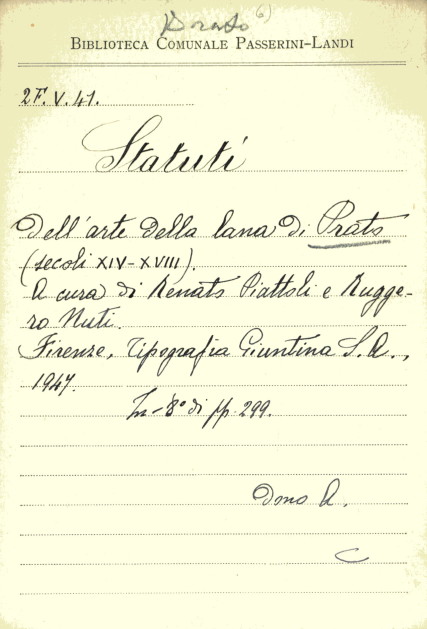 Prato (6)
BIBLIOTECA COMUNALE PASSERINI-LANDI
2F.V.41.
Statuti
dell'arte della lana di Prato
(secoli XIV-XVIII).
A cura di Renato Piattoli e Rugge-
ro Nuti.
Firenze, Tipografia Giuntina S.A.,
1947.
In-8° di pp. 299.
Dono A.
C